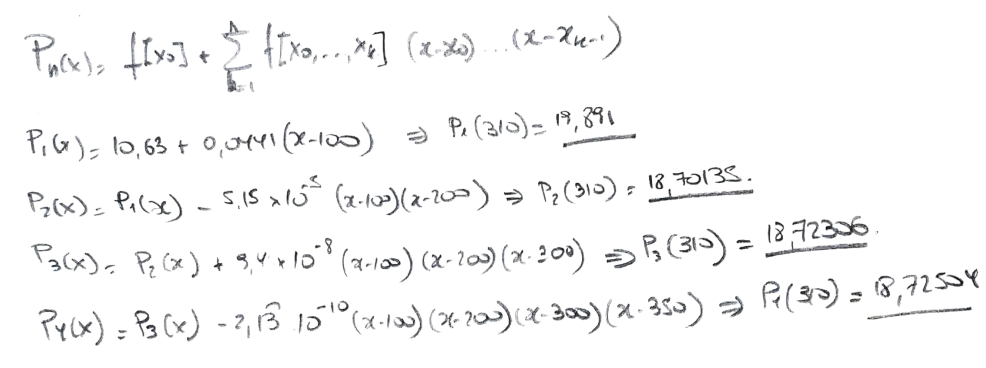 Pn(x) = f[x0] + Σ_{k=1}^{n} f[x0,..,xk] (x-x0)...(x-xk-1)
P1(x) = 10,63 + 0,0441(x-100) ⇒ P1(310) = 19,891
P2(x) = P1(x) - 5,15 x 10^-5 (x-100)(x-200) ⇒ P2(310) = 18,70135.
P3(x) = P2(x) + 9,4 x 10^-8 (x-100)(x-200)(x-300) ⇒ P3(310) = 18,72306.
P4(x) = P3(x) - 2,13 10^-10 (x-100)(x-200)(x-300)(x-350) ⇒ P4(310) = 18,72504